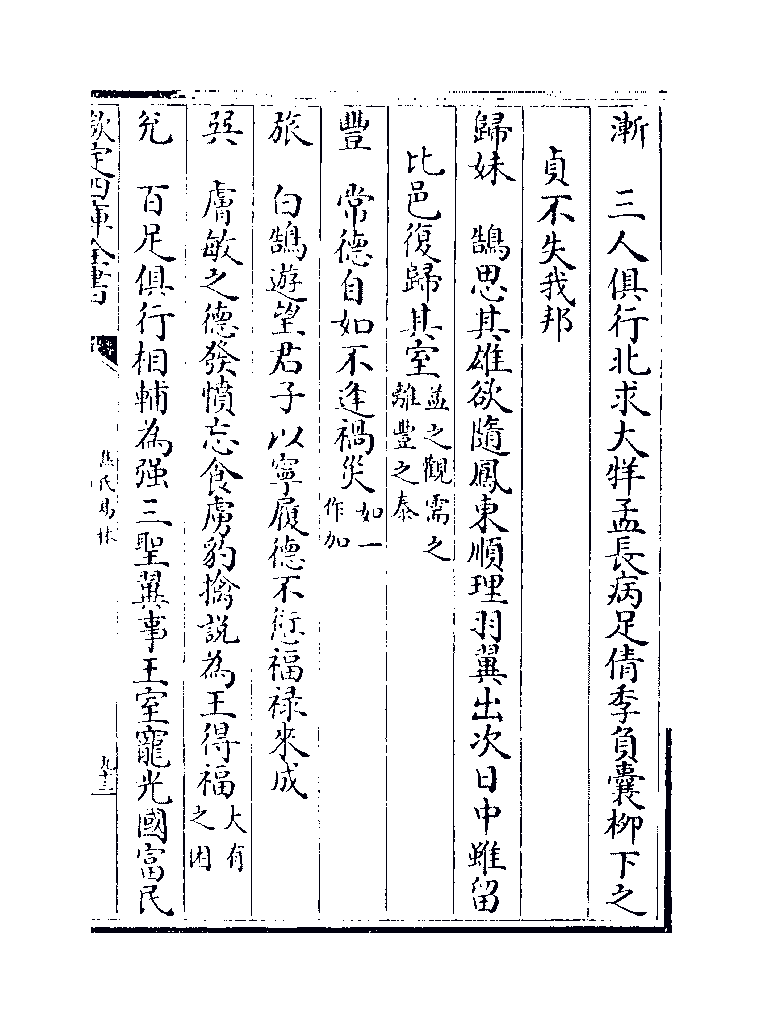 漸　三人俱行北求大牂孟長病足倩季負囊柳下之
貞不失我邦
歸妹　鵠思其雄欲隨鳳東順理羽翼出次日中雖留
比邑復歸其室益之觀需之
離豐之泰
豐　常德自如不逢禍災如一
作加
旅　白鵠遊望君子以寧履德不愆福祿來成
巽　膚敏之德發憤忘食虜豹擒說為王得福大有
之困
兌　百足俱行相輔為强三聖翼事王室寵光國富民
欽定四庫全書
焦氏易林
九十三